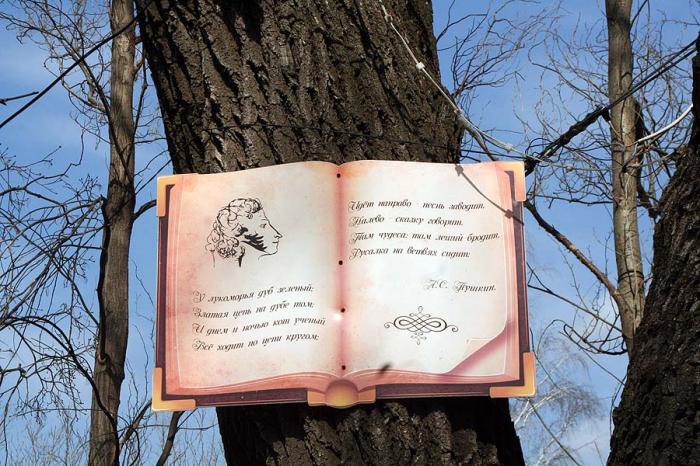 У лукоморья дуб зеленый;
Златая цепь на дубе том;
И днем и ночью кот ученый
Всё ходит по цепи кругом;
Идёт направо - песнь заводит.
Налево - сказку говорит.
Там чудеса: там леший бродит.
Русалка на ветвях сидит;
А.С. Пушкин.